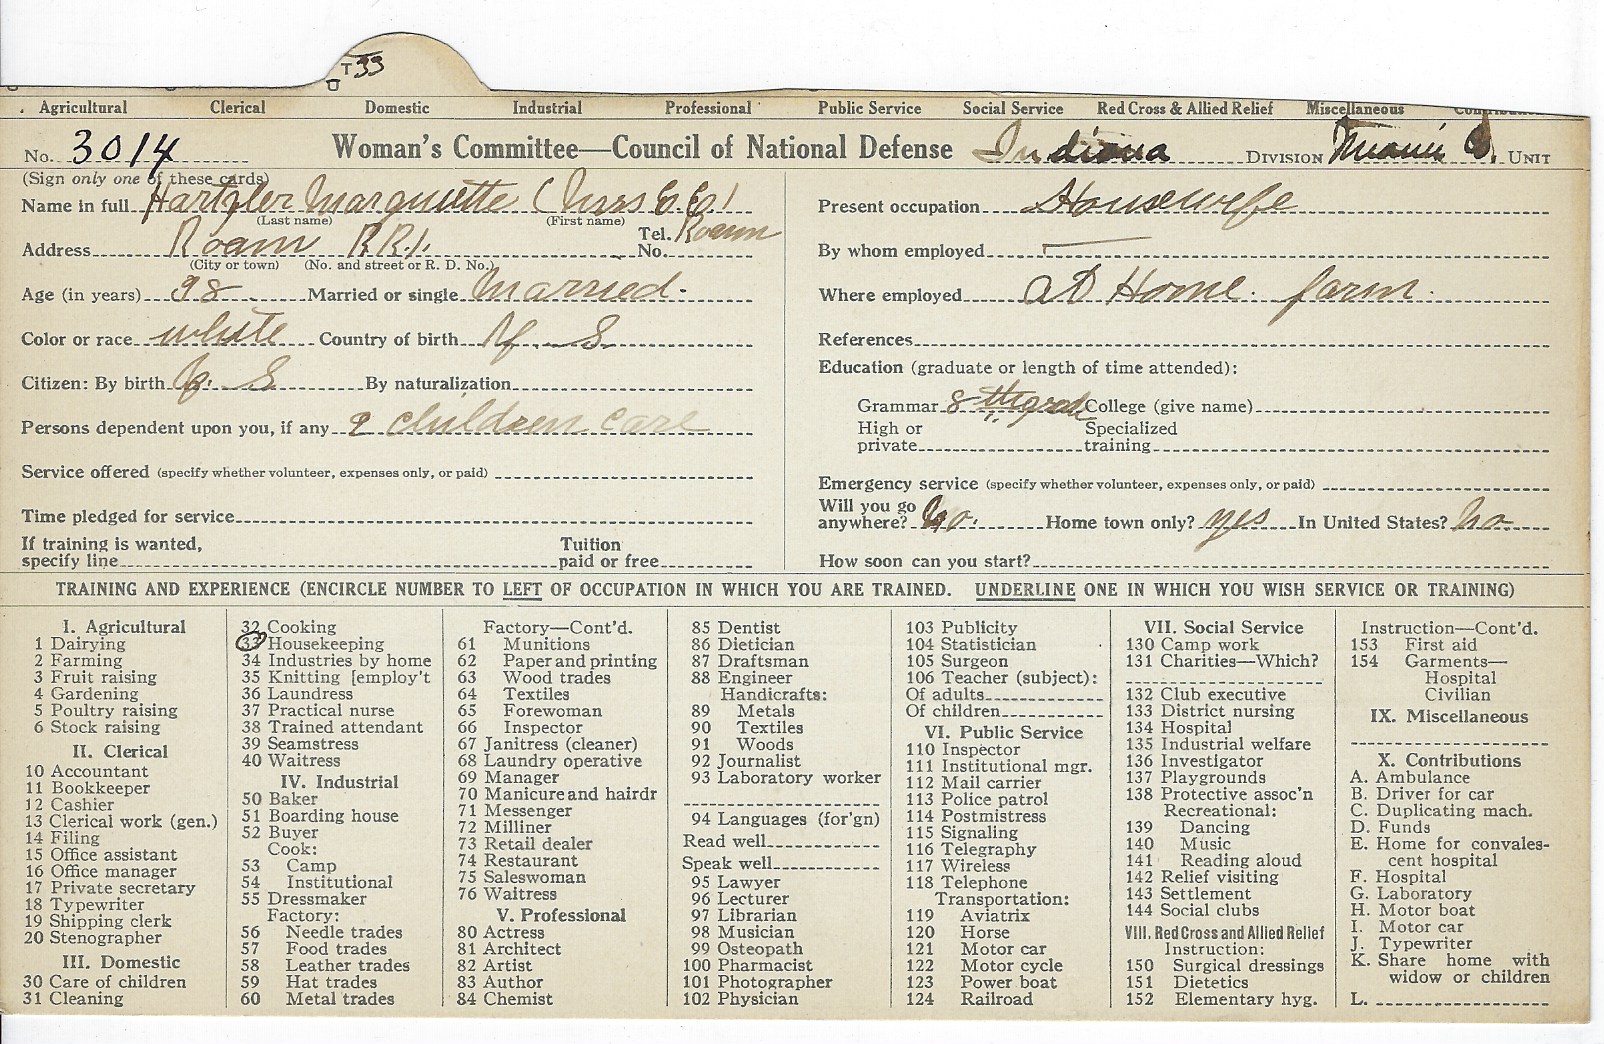 T33
Agricultural Clerical Domestic Industrial Professional Public Service Social Service Red Cross & Allied Relief Miscellaneous
No. 3014 Woman's Committee—Council of National Defense Indiana DIVISION Miami Co. UNIT
(Sign only one of these cards)
Name in full Hartzler Marquette (Mrs C.C.)
(Last name) (First name)
Address Roann RR1. Tel. No. Roann
(City or town) (No. and street or R. D. No.)
Age (in years) 38 Married or single Married.
Color or race white Country of birth U. S.
Citizen: By birth U. S. By naturalization
Persons dependent upon you, if any 2 children care
Service offered (specify whether volunteer, expenses only, or paid)
Time pledged for service
If training is wanted, specify line Tuition paid or free
Present occupation Housewife
By whom employed
Where employed at Home. farm.
References
Education (graduate or length of time attended):
Grammar 8th grade College (give name)
High or private Specialized training
Emergency service (specify whether volunteer, expenses only, or paid)
Will you go anywhere? No. Home town only? yes In United States? No
How soon can you start?
TRAINING AND EXPERIENCE (ENCIRCLE NUMBER TO LEFT OF OCCUPATION IN WHICH YOU ARE TRAINED. UNDERLINE ONE IN WHICH YOU WISH SERVICE OR TRAINING)
I. Agricultural
1 Dairying
2 Farming
3 Fruit raising
4 Gardening
5 Poultry raising
6 Stock raising
II. Clerical
10 Accountant
11 Bookkeeper
12 Cashier
13 Clerical work (gen.)
14 Filing
15 Office assistant
16 Office manager
17 Private secretary
18 Typewriter
19 Shipping clerk
20 Stenographer
III. Domestic
30 Care of children
31 Cleaning
32 Cooking
33 Housekeeping
34 Industries by home
35 Knitting [employ't
36 Laundress
37 Practical nurse
38 Trained attendant
39 Seamstress
40 Waitress
IV. Industrial
50 Baker
51 Boarding house
52 Buyer
Cook:
53 Camp
54 Institutional
55 Dressmaker
Factory:
56 Needle trades
57 Food trades
58 Leather trades
59 Hat trades
60 Metal trades
Factory—Cont'd.
61 Munitions
62 Paper and printing
63 Wood trades
64 Textiles
65 Forewoman
66 Inspector
67 Janitress (cleaner)
68 Laundry operative
69 Manager
70 Manicure and hairdr
71 Messenger
72 Milliner
73 Retail dealer
74 Restaurant
75 Saleswoman
76 Waitress
V. Professional
80 Actress
81 Architect
82 Artist
83 Author
84 Chemist
85 Dentist
86 Dietician
87 Draftsman
88 Engineer
Handicrafts:
89 Metals
90 Textiles
91 Woods
92 Journalist
93 Laboratory worker
94 Languages (for'gn)
Read well
Speak well
95 Lawyer
96 Lecturer
97 Librarian
98 Musician
99 Osteopath
100 Pharmacist
101 Photographer
102 Physician
103 Publicity
104 Statistician
105 Surgeon
106 Teacher (subject):
Of adults
Of children
VI. Public Service
110 Inspector
111 Institutional mgr.
112 Mail carrier
113 Police patrol
114 Postmistress
115 Signaling
116 Telegraphy
117 Wireless
118 Telephone
Transportation:
119 Aviatrix
120 Horse
121 Motor car
122 Motor cycle
123 Power boat
124 Railroad
VII. Social Service
130 Camp work
131 Charities—Which?
132 Club executive
133 District nursing
134 Hospital
135 Industrial welfare
136 Investigator
137 Playgrounds
138 Protective assoc'n
Recreational:
139 Dancing
140 Music
141 Reading aloud
142 Relief visiting
143 Settlement
144 Social clubs
VIII. Red Cross and Allied Relief
Instruction:
150 Surgical dressings
151 Dietetics
152 Elementary hyg.
Instruction—Cont'd.
153 First aid
154 Garments—
Hospital
Civilian
IX. Miscellaneous
X. Contributions
A. Ambulance
B. Driver for car
C. Duplicating mach.
D. Funds
E. Home for convales-
cent hospital
F. Hospital
G. Laboratory
H. Motor boat
I. Motor car
J. Typewriter
K. Share home with
widow or children
L.